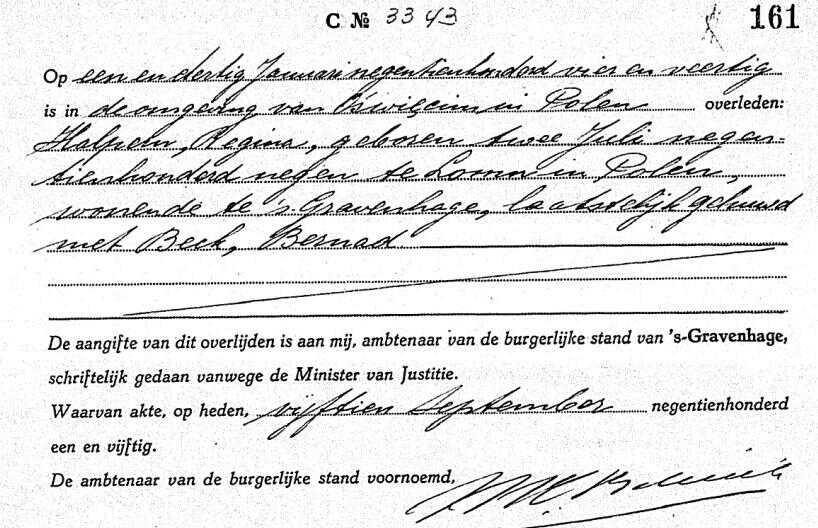 C № 3343 161
Op een en dertig Januari negentienhonderd vier en veertig
is in de omgeving van Oświęcim in Polen overleden:
Halpern, Regina, geboren twee Juli negen-
tienhonderd negen te in Polen,
wonende te 's-Gravenhage, laatstelijk gehuwd
met Beck, Bernad.
De aangifte van dit overlijden is aan mij, ambtenaar van de burgerlijke stand van 's-Gravenhage,
schriftelijk gedaan vanwege de Minister van Justitie.
Waarvan akte, op heden, vijftien September negentienhonderd
een en vijftig.
De ambtenaar van de burgerlijke stand voornoemd,